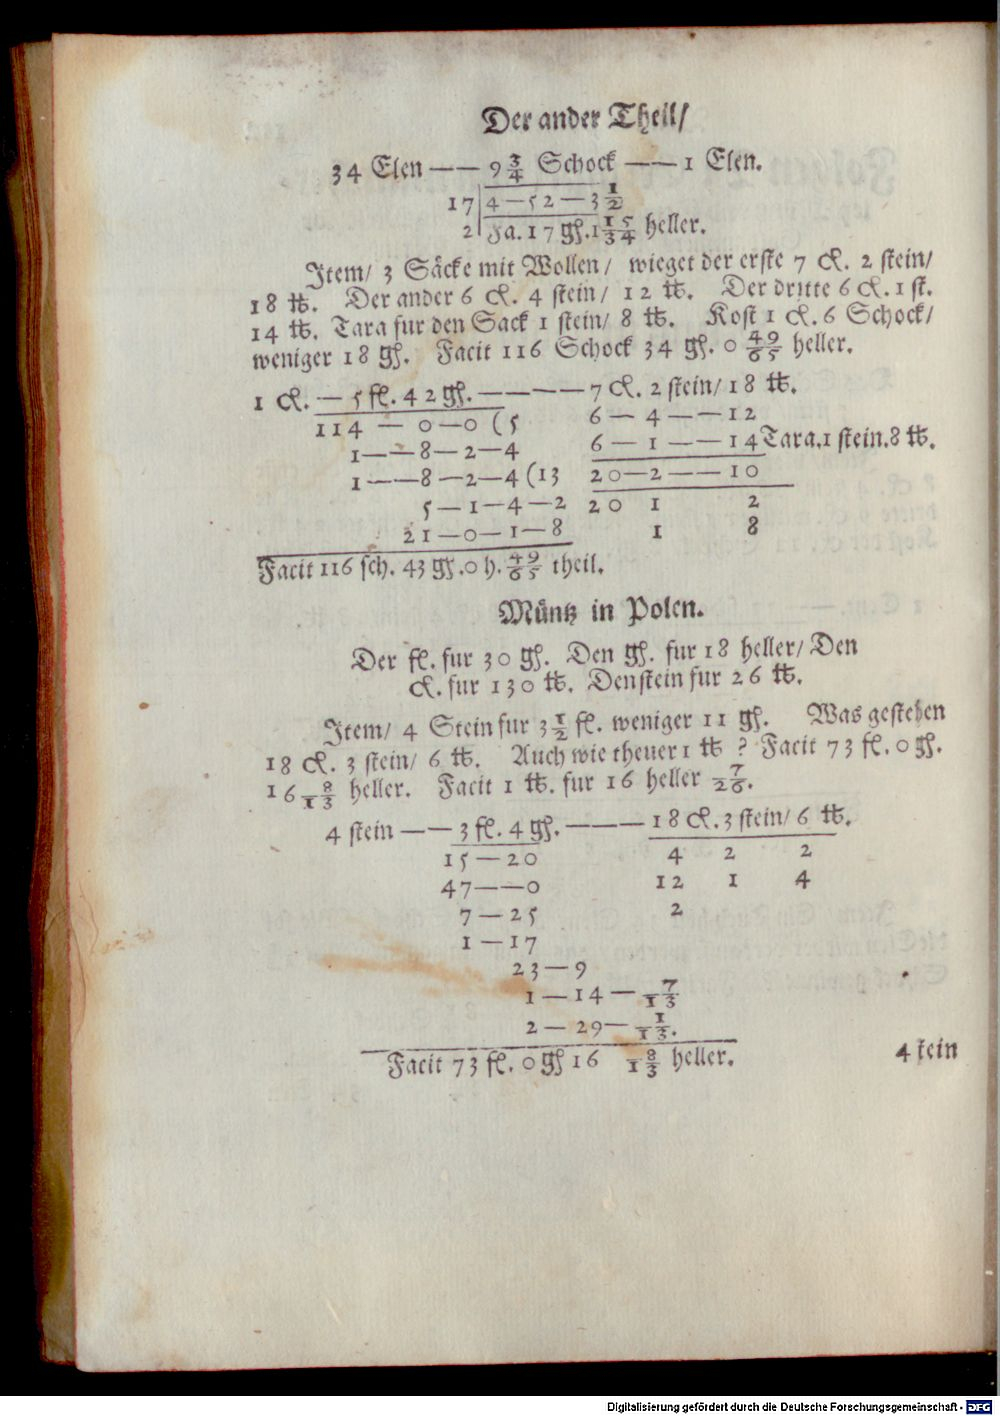 Der ander Theil/
34 Elen —— 9 3/4 Schock —— 1 Elen.
17 | 4 — 52 — 3 1/2
2 | Fa. 17 gꝭ. 1 1 5/3 4 heller.
Item/ 3 Säcke mit Wollen/ wieget der erste 7 cł. 2 stein/
18 ℔. Der ander 6 cł. 4 stein/ 12 ℔. Der dritte 6 cł. 1 st.
14 ℔. Tara fur den Sack 1 stein/ 8 ℔. Kost 1 cł. 6 Schock/
weniger 18 gꝭ. Facit 116 Schock 34 gꝭ. 0 49/65 heller.
1 cł. — 5 fł. 42 gꝭ. — — — — 7 cł. 2 stein/ 18 ℔.
114 — 0 — 0 (5 6 — 4 — — 12
1 — — 8 — 2 — 4 6 — 1 — — 14 Tara. 1 stein. 8 ℔.
1 — — 8 — 2 — 4 (13 20 — 2 — — 10
5 — 1 — 4 — 2 20 1 2
21 — 0 — 1 — 8 1 8
Facit 116 sch. 43 gꝭ. 0 h. 49/65 theil.
Müntz in Polen.
Der fł. fur 30 gꝭ. Den gꝭ. fur 18 heller/ Den
cł. fur 130 ℔. Den stein fur 26 ℔.
Item/ 4 Stein fur 3 1/2 fł. weniger 11 gꝭ. Was gestehen
18 cł. 3 stein/ 6 ℔. Auch wie theuer 1 ℔ ? Facit 73 fł. 0 gꝭ.
16 8/13 heller. Facit 1 ℔. fur 16 heller 7/26.
4 stein — — 3 fł. 4 gꝭ. — — — 18 cł. 3 stein/ 6 ℔.
15 — 20 4 2 2
47 — — 0 12 1 4
7 — 25 2
1 — 17
23 — 9
1 — 14 — 7/13
2 — 29 — 1/13.
Facit 73 fł. 0 gꝭ 16 8/13 heller.
4 stein
Digitalisierung gefördert durch die Deutsche Forschungsgemeinschaft - DFG